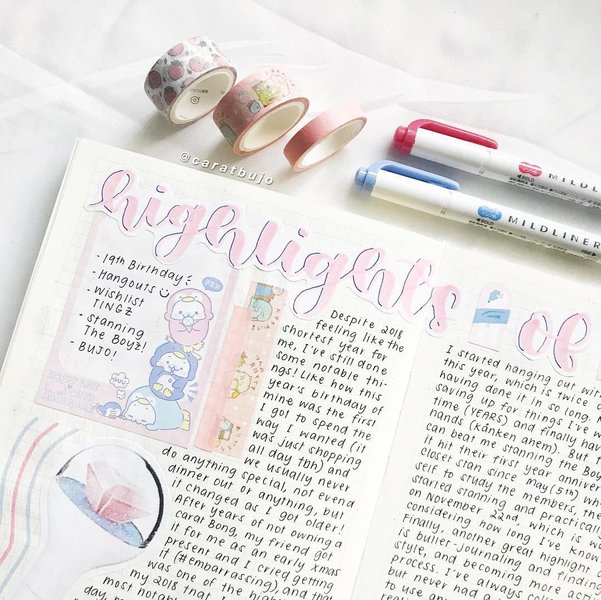 @caratbujo
MILDLINER
MILDLINER
highlights of
- 19th Birthday
- Hangouts
- Wishlist
TINGZ
- Stanning
The Boyz!
- BUJO!
Despite 2018
feeling like the
shortest year for
me, I've still done
some notable thi-
ngs! Like how this
year's birthday of
mine was the first
I got to spend the
way I wanted (it
was just shopping
all day tbh) and
we usually never
do anything special, not even a
dinner out or anything, but
it changed as I got older!
After years of not owning a
Carat Bong, my friend got
it for me as an early xmas
present and I cried getting
it (#embarrassing), and that
was one of the high
most notabl
my 2018 that I
day, m
I started hanging out wit
this year, which is twice
having done it in so long.
saving up for things I've w
time (YEARS) and finally hav
nands (kånken anem). But
can beat me stanning the Boy
it hit their first year anniver
closet stan since may (5th) wh
self to study the members, the
started stanning and practically
on November 22nd, which is w
considering how long I've know
Finally, another great highlight
is bullet-journaling and findin
style, and becoming more acti
process. I've always
but never had a
to use an